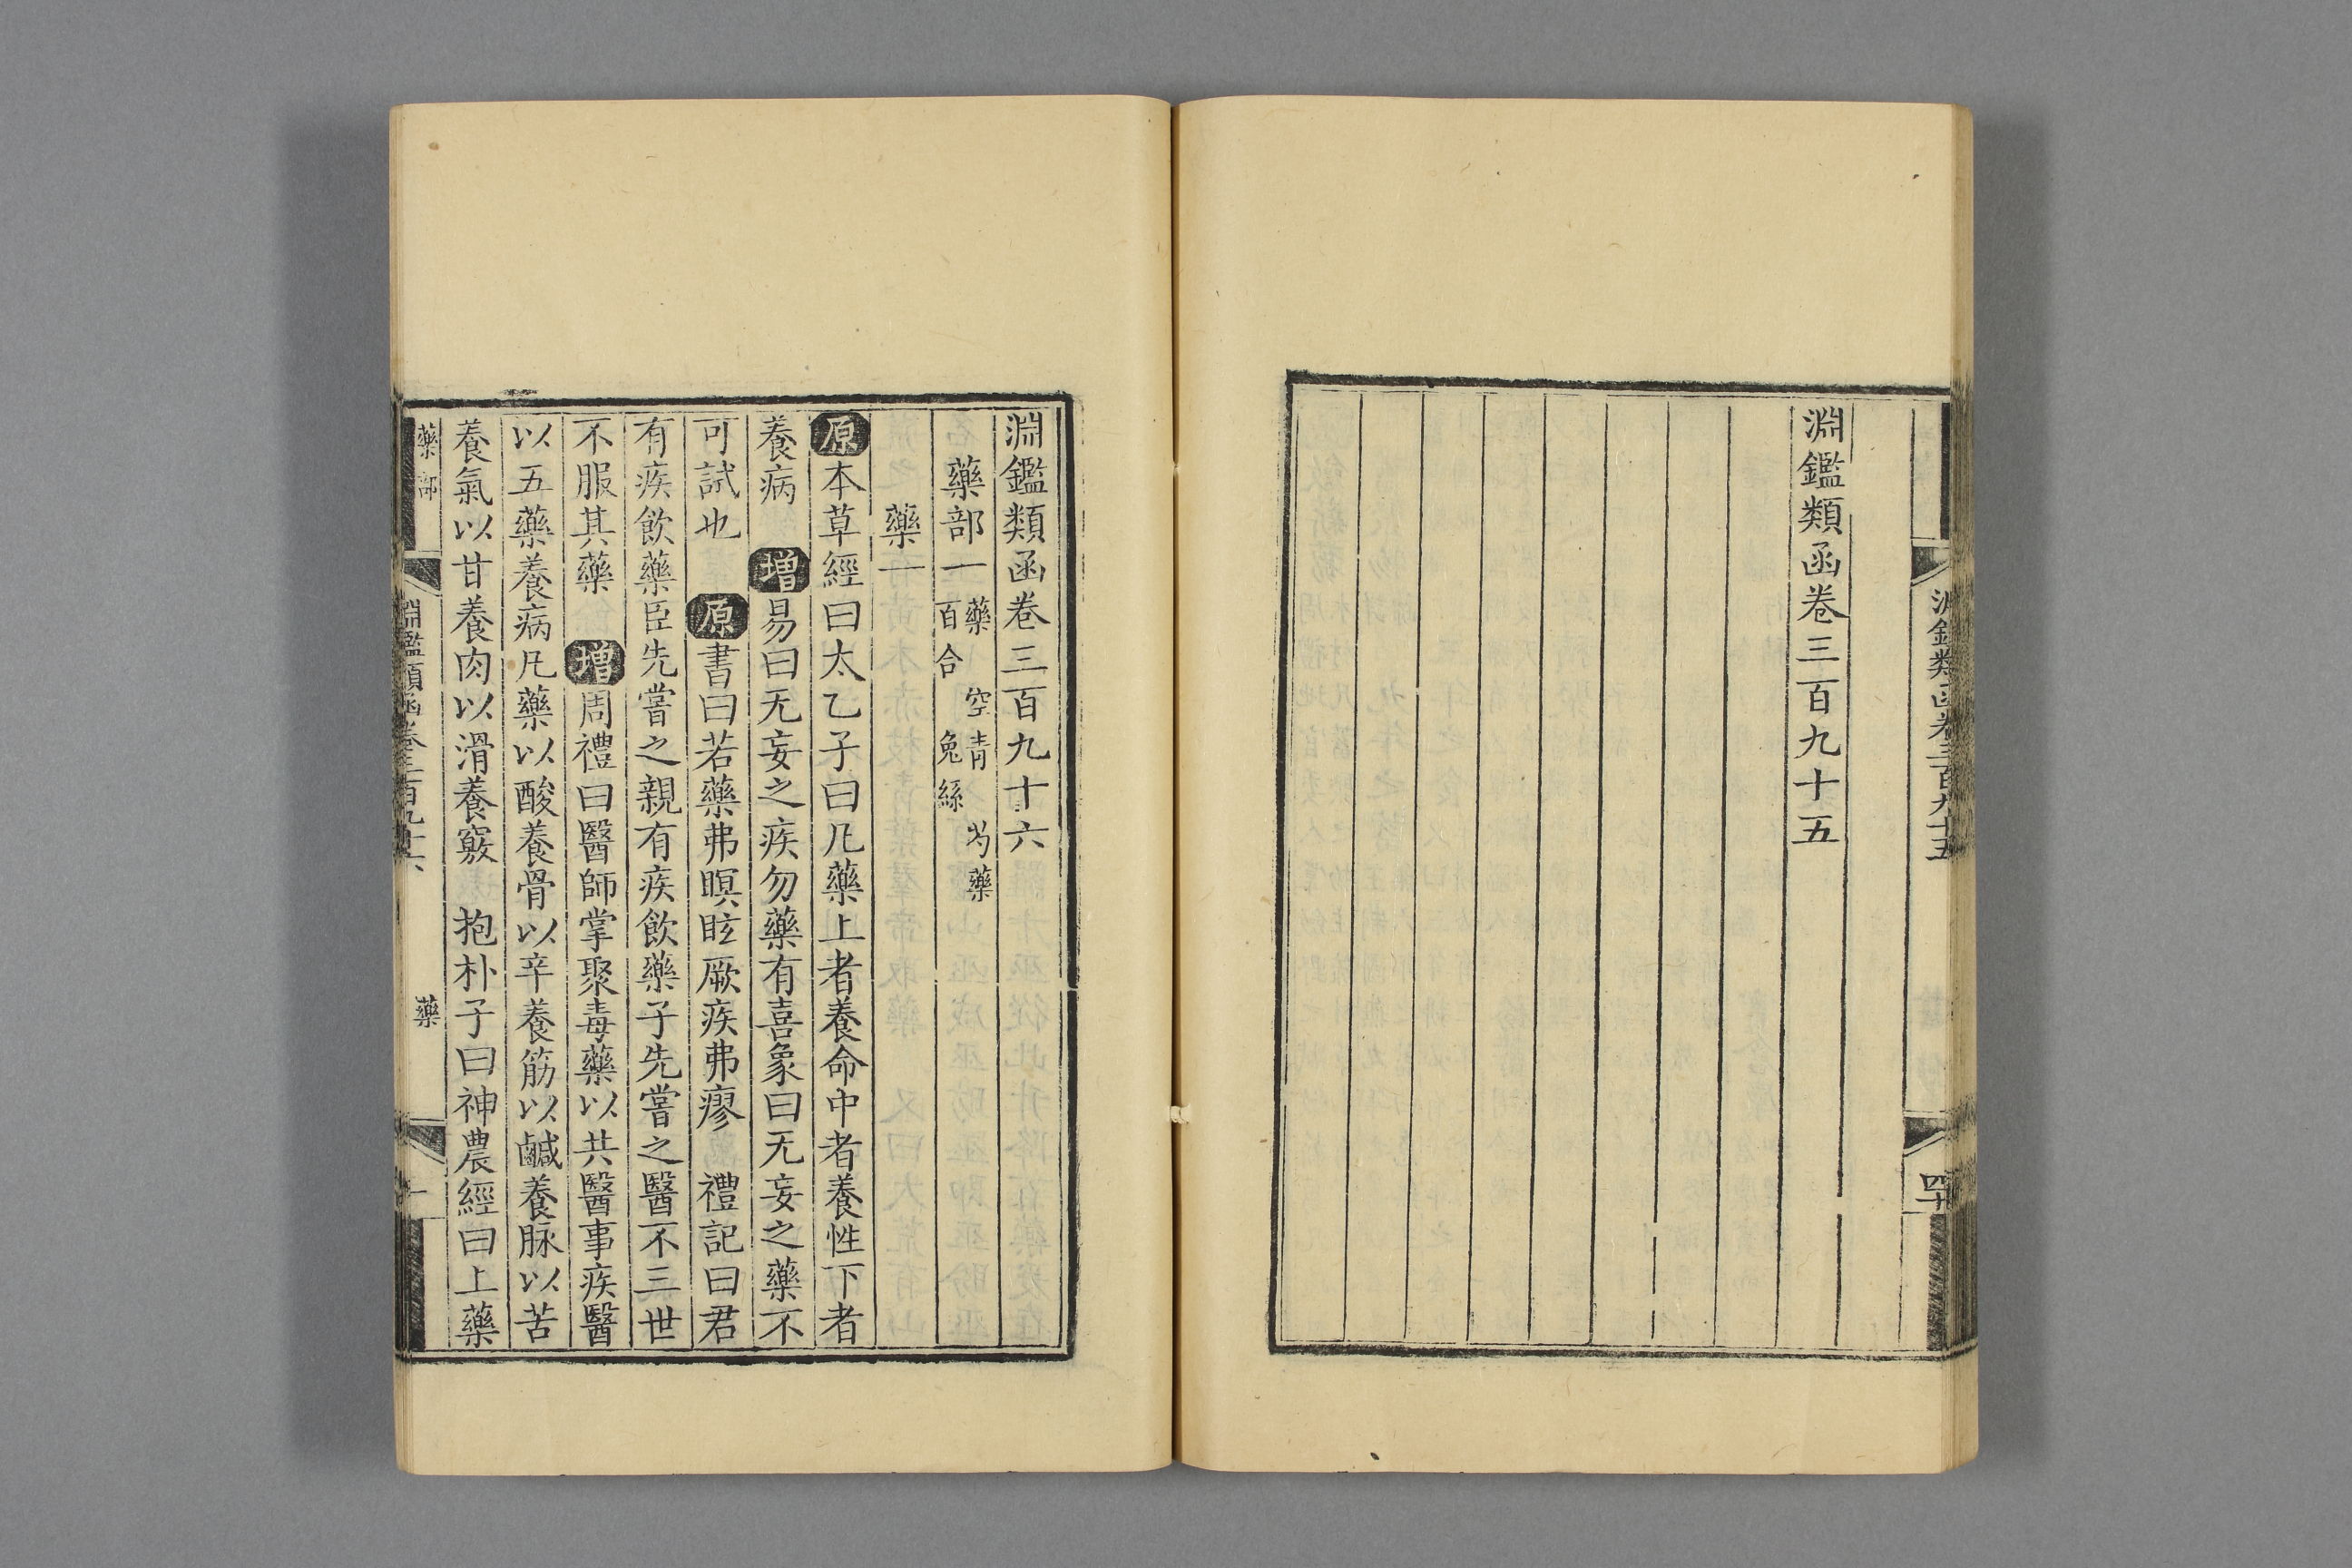 淵鑑類函卷三百九十五
淵鑑類函卷三百九十五
四十
淵鑑類函卷三百九十六
藥部一 藥 空青 芍藥
百合 兔絲
藥一
原本草經曰太乙子曰凡藥上者養命中者養性下者
養病 增易曰无妄之疾勿藥有喜象曰无妄之藥不
可試也 原書曰若藥弗瞑眩厥疾弗瘳 禮記曰君
有疾飲藥臣先嘗之親有疾飲藥子先嘗之醫不三世
不服其藥 增周禮曰醫師掌聚毒藥以共醫事疾醫
以五藥養病凡藥以酸養骨以辛養筋以鹹養脉以苦
養氣以甘養肉以滑養竅 抱朴子曰神農經曰上藥
藥部 淵鑑類函卷三百九十六 藥 一